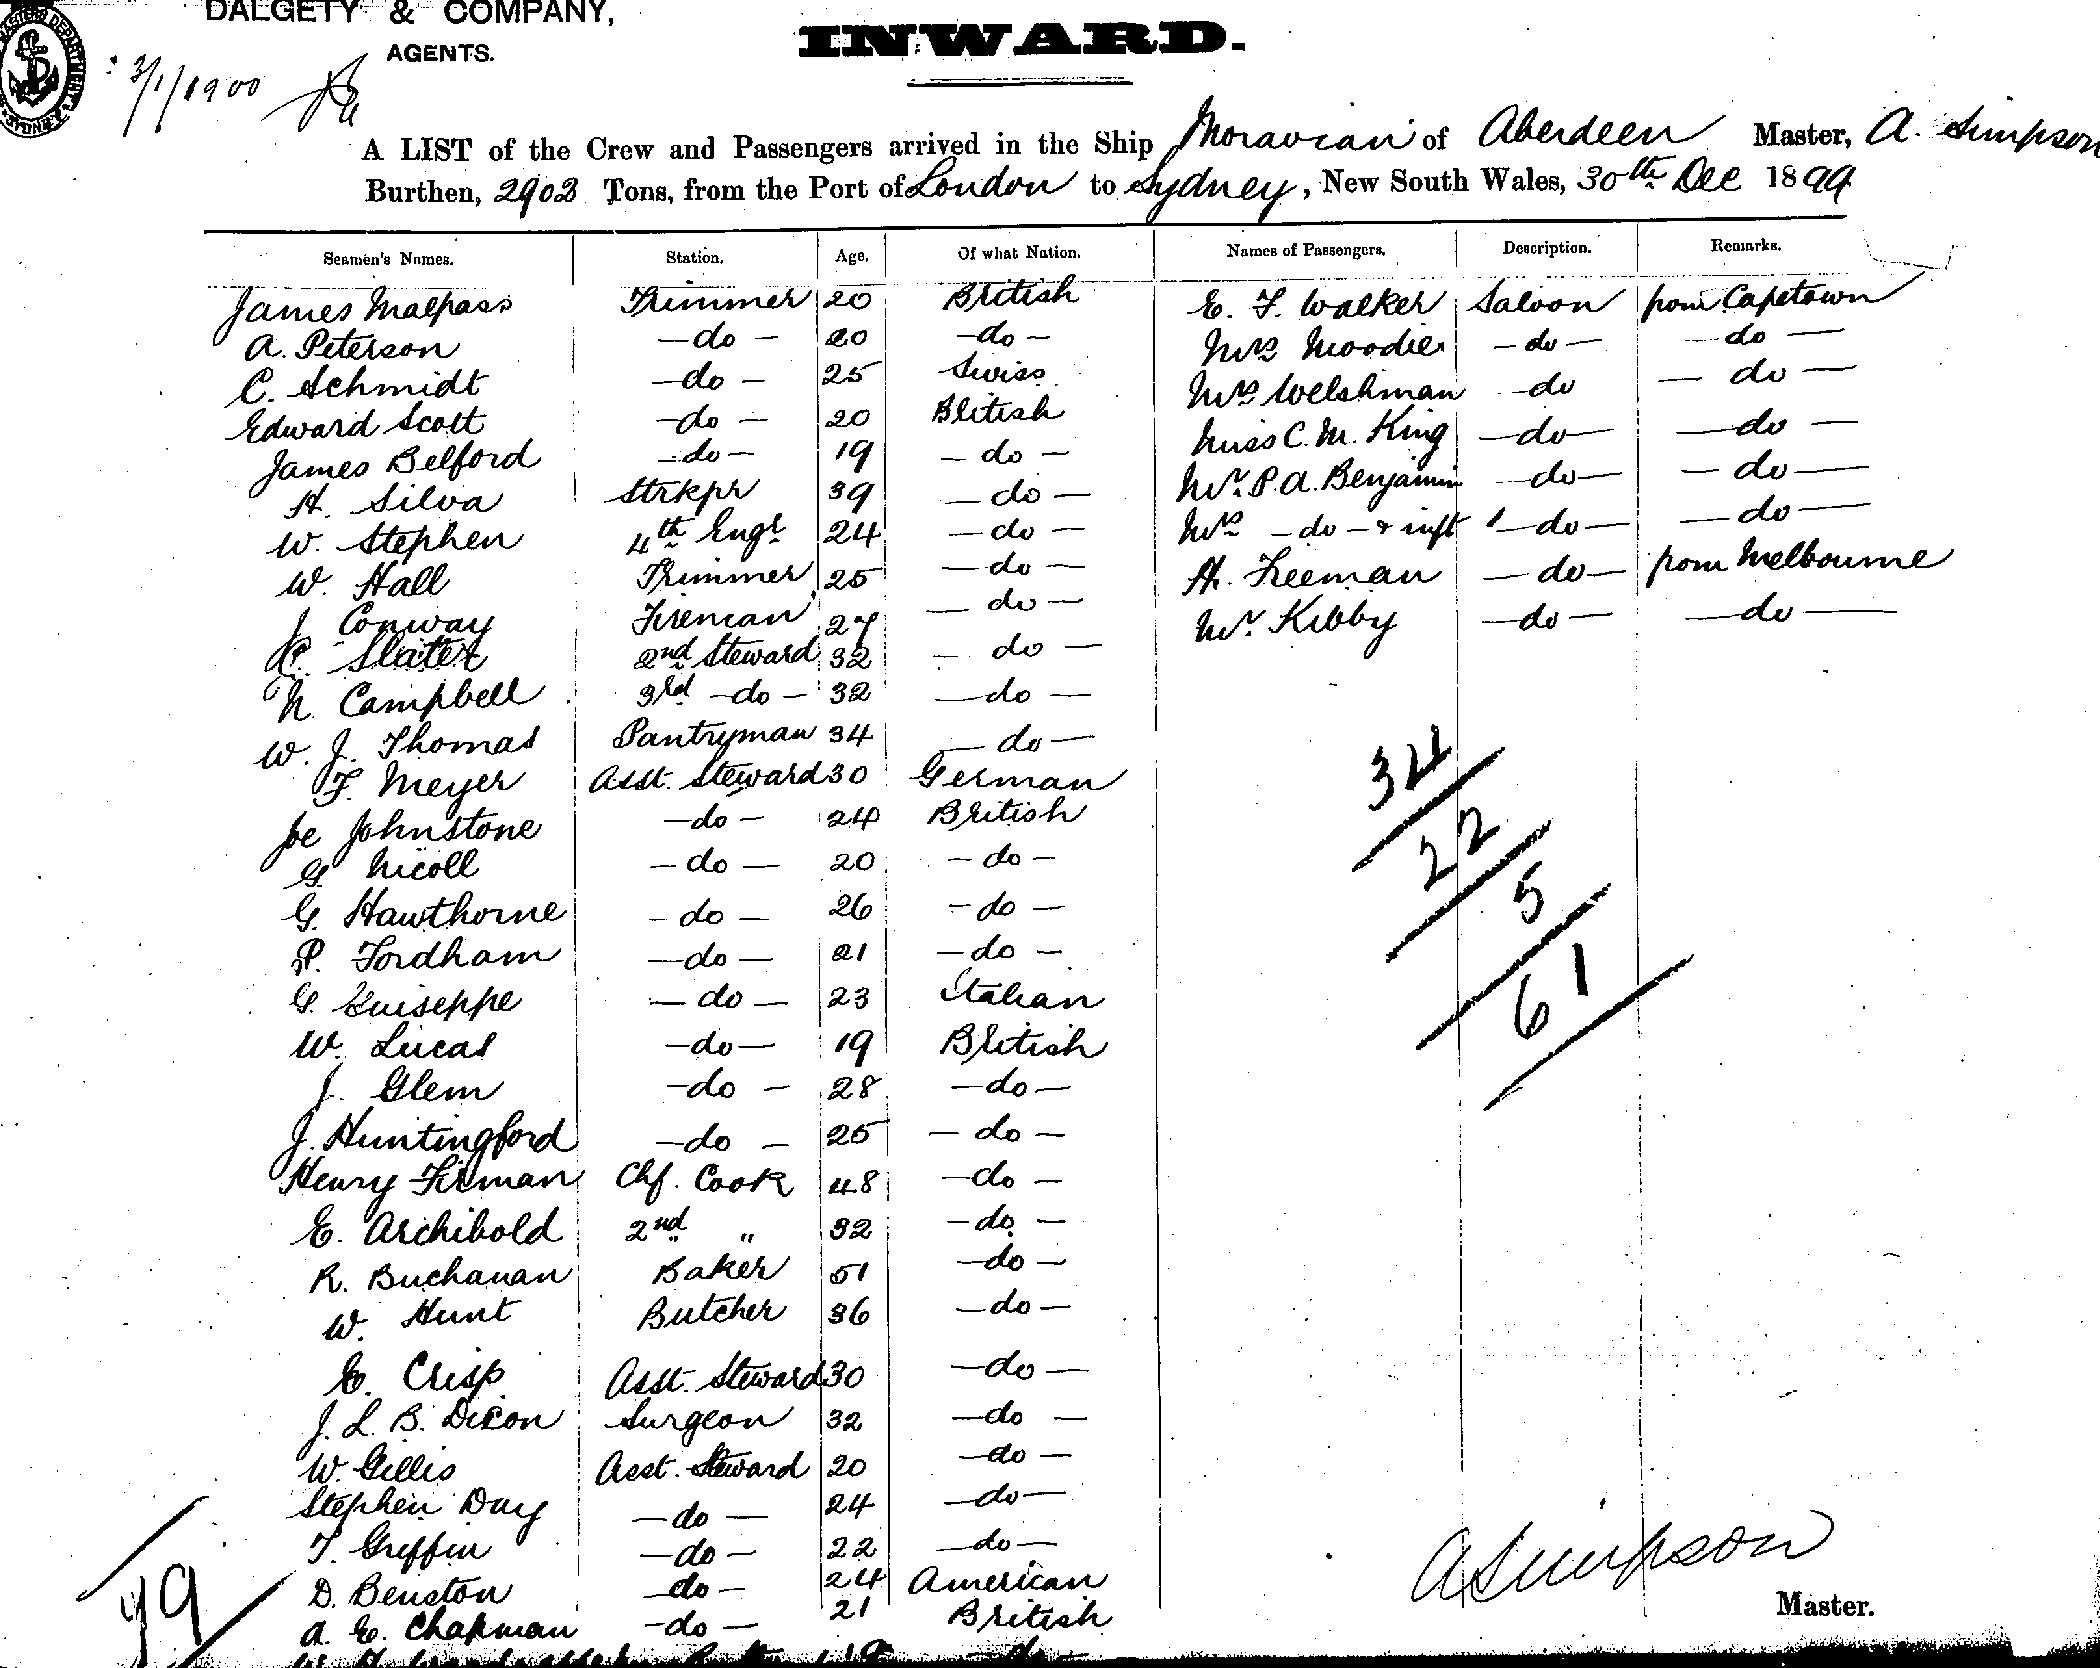 DALGETY & COMPANY,
AGENTS.
INWARD.
3/1/1900
A LIST of the Crew and Passengers arrived in the Ship Moravian of Aberdeen Master, A. Simpson
Burthen, 2903 Tons, from the Port of London to Sydney, New South Wales, 30th Dec 1899
Seamen's Names. Station. Age. Of what Nation. Names of Passengers. Description. Remarks.
James Malpass Trimmer 20 British E. F. Walker Saloon from Capetown
A. Peterson -do- 20 -do- Mrs Moodie -do- -do-
C. Schmidt -do- 25 Swiss Mrs Welshman -do -do-
Edward Scott -do- 20 British Miss C. M. King -do- -do-
James Belford -do- 19 -do- Mr. P. A. Benjamin -do- -do-
H. Silva Strkpr 39 -do- Mrs -do- & inft -do- -do-
W. Stephen 4th Engr 24 -do- H. Freeman -do- from Melbourne
W. Hall Trimmer 25 -do- Mr. Kibby -do- -do-
J. Conway Fireman 27 -do-
Slater 2nd Steward 32 -do-
N. Campbell 3rd -do- 32 -do-
W. J. Thomas Pantryman 34 -do-
F. Meyer Asst. Steward 30 German
Joe Johnstone -do- 24 British
G. Nicoll -do- 20 -do-
G. Hawthorne -do- 26 -do-
P. Fordham -do- 21 -do-
G. Guiseppe -do- 23 Italian
W. Lucas -do- 19 British
J. Glem -do- 28 -do-
J. Huntingford -do- 25 -do-
Henry Firman Chf. Cook 48 -do-
E. Archibold 2nd " 32 -do-
R. Buchanan Baker 51 -do-
W. Hunt Butcher 36 -do-
E. Crisp Asst. Steward 30 -do-
J. L. B. Dixon Surgeon 32 -do-
W. Gillis Asst. Steward 20 -do-
Stephen Day -do- 24 -do-
T. Griffin -do- 22 -do-
D. Benston -do- 24 American
A. E. Chapman -do- 21 British
34
22
5
61
79
A Simpson
Master.